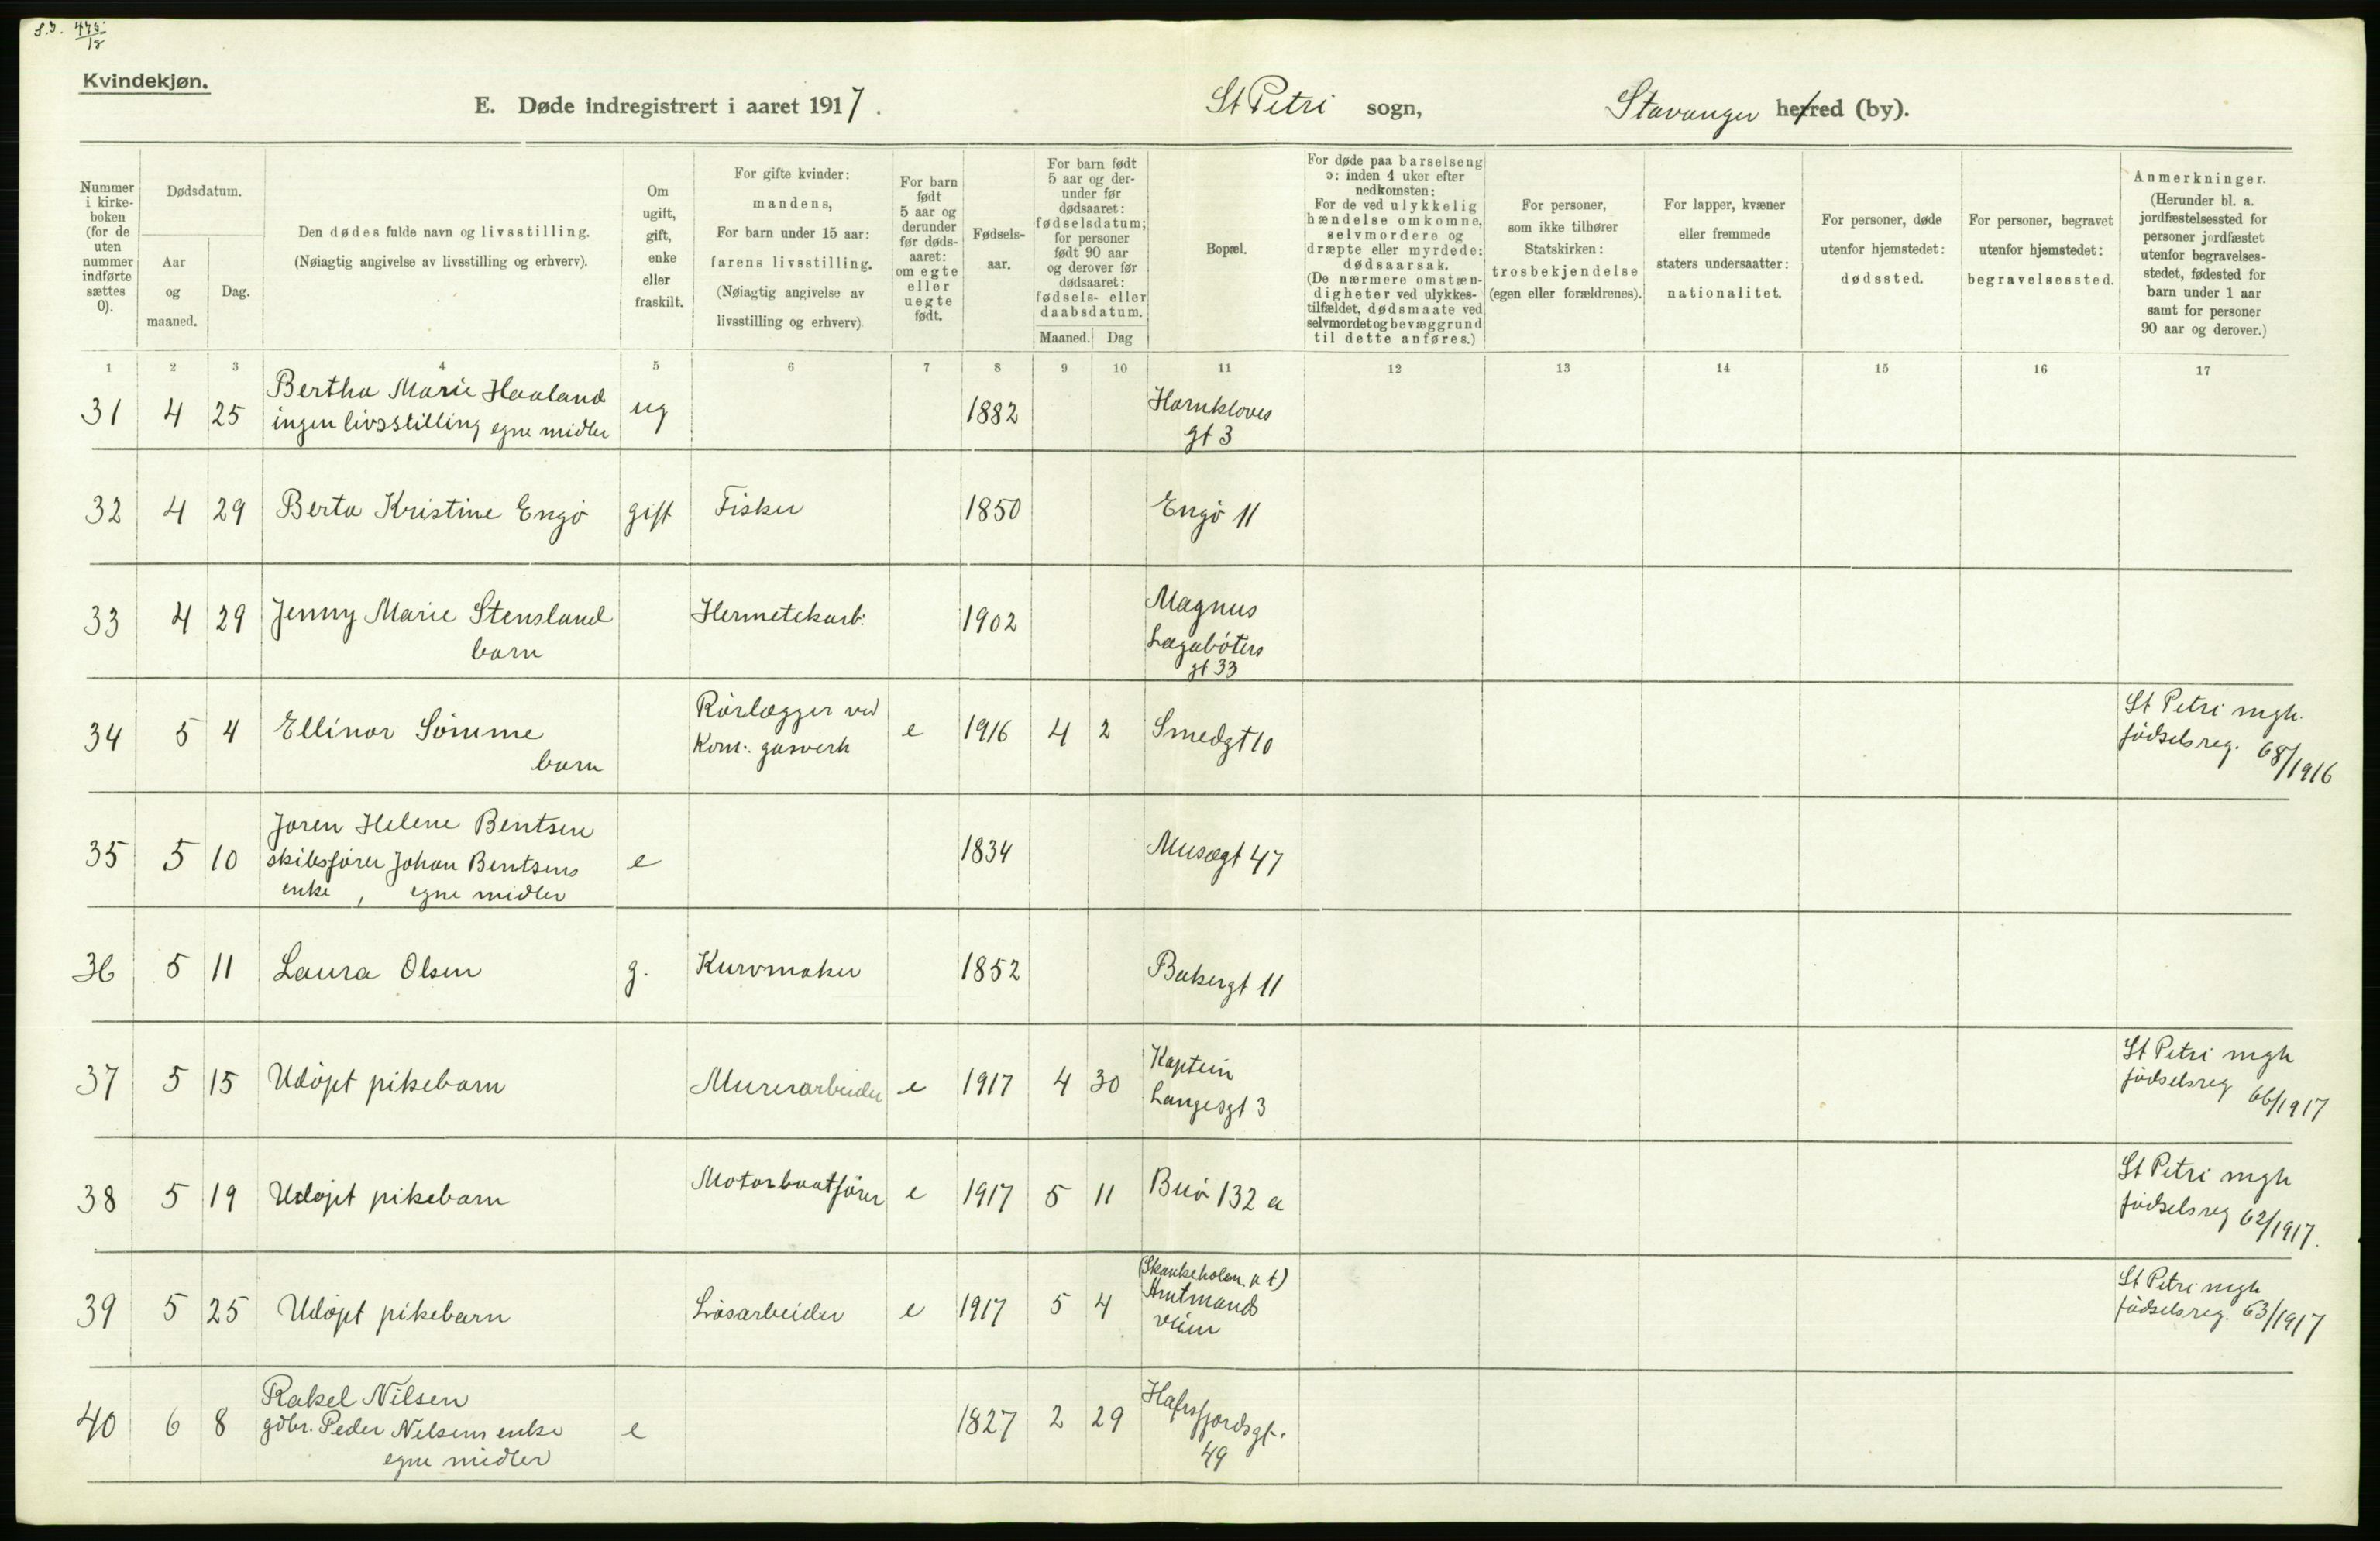 Kvindekjøn.
E. Døde indregistrert i aaret 1917.
St Petri sogn,
Stavanger herred (by).
Nummer i kirke-boken (for de uten nummer indførte sættes 0).
Dødsdatum.
Aar og maaned.
Dag.
Den dødes fulde navn og livsstilling.
(Nøiagtig angivelse av livsstilling og erhverv).
Om ugift, gift, enke eller fraskilt.
For gifte kvinder: mandens,
For barn under 15 aar: farens livsstilling.
(Nøiagtig angivelse av livsstilling og erhverv).
For barn født 5 aar og derunder før døds-aaret: om egte eller uegte født.
Fødsels-aar.
For barn født 5 aar og der-under før dødsaaret: fødselsdatum; for personer født 90 aar og derover før dødsaaret: fødsels- eller daabsdatum.
Maaned. Dag
Bopæl.
For døde paa barselseng ɔ: inden 4 uker efter nedkomsten:
For de ved ulykkelig hændelse omkomne, selvmordere og dræpte eller myrdede: dødsaarsak.
(De nærmere omstæn-digheter ved ulykkes-tilfældet, dødsmaate ved selvmordet og bevæggrund til dette anføres.)
For personer, som ikke tilhører Statskirken: trosbekjendelse (egen eller forældrenes).
For lapper, kvæner eller fremmede staters undersaatter: nationalitet.
For personer, døde utenfor hjemstedet: dødssted.
For personer, begravet utenfor hjemstedet: begravelsessted.
Anmerkninger.
(Herunder bl. a. jordfæstelsessted for personer jordfæstet utenfor begravelses-stedet, fødested for barn under 1 aar samt for personer 90 aar og derover.)
1 2 3 4 5 6 7 8 9 10 11 12 13 14 15 16 17
31 4 25 Bertha Marie Haaland ug 1882 Harnkloves
ingen livsstilling egne midler gt 3
32 4 29 Berta Kristine Engø gift Fisker 1850 Engø 11
33 4 29 Jenny Marie Stensland Hermetekarb: 1902 Magnus
barn Lagabøters
gt 33
34 5 4 Ellinor Sømme Rørlægger ved e 1916 4 2 Smedgt 10 St Petri mgh.
barn Kom. gasverk fødselsreg. 68/1916
35 5 10 Joren Helene Bentsen e 1834 Musøgt 47
skibsfører Johan Bentsens
enke, egne midler
36 5 11 Laura Olsen g. Kurvmaker 1852 Bakergt 11
37 5 15 Udøpt pikebarn Murerarbeider e 1917 4 30 Kaptein St Petri mgh
Langesgt 3 fødselsreg 66/1917
38 5 19 Udøpt pikebarn Motorbaatfører e 1917 5 11 Buø 132 a St Petri mgh
fødselsreg 62/1917.
39 5 25 Udøpt pikebarn Løsarbeider e 1917 5 4 Amtmands St Petri mgh
veien fødselsreg. 63/1917
40 6 8 Rakel Nilsen e 1827 2 29 Hafrsfjordsgt.
gdbr. Peder Nelsens enke 49
egne midler